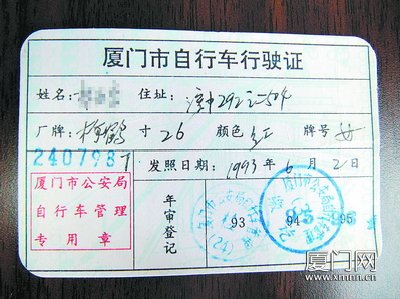 厦门市自行车行驶证
姓名: 住址: 292 504
厂牌: 梅鹤 寸 26 颜色 红 牌号 女
240793 发照日期: 1993年 6月 2日
厦门市公安局
自行车管理
专用章
年审登记
93 94 95
厦门网
www.xmnn.cn